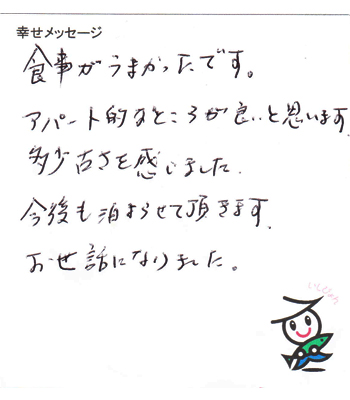 幸せメッセージ
食事がうまかったです。
アパート的なところが良いと思います
多少古さを感じました.
今後も泊まらせて頂きます.
お世話になりました。